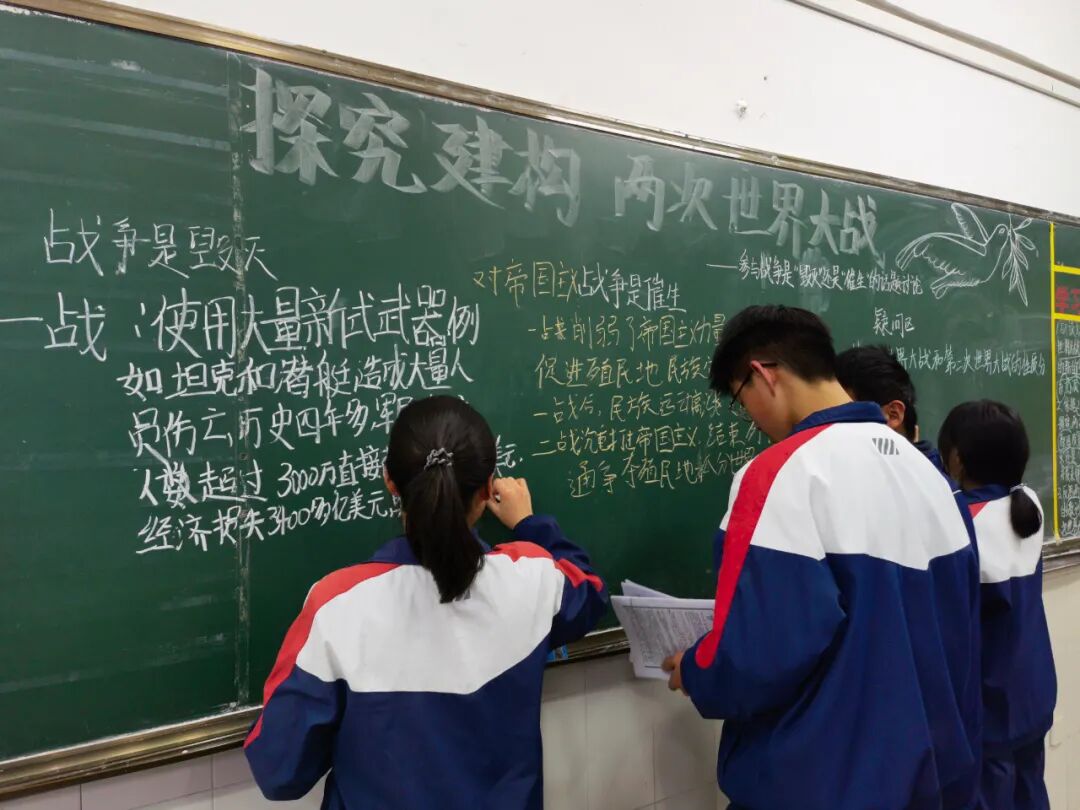 探究建构 两次世界大战
——参与战争是"毁灭"还是"催生"的话题讨论
战争是毁灭
一战:使用大量新式武器例
如坦克和潜艇造成大量人
员伤亡,历史四年多,军
人数超过3000万直接
经济损失3400多亿美元
对帝国主战争是催生
一战削弱了帝国主力量
促进殖民地民族
一战后,民族运动高涨
二战沉重打帝国主义,结束
通争夺殖民地瓜分世界
疑问区
世界大战和第二次世界大战的性质分